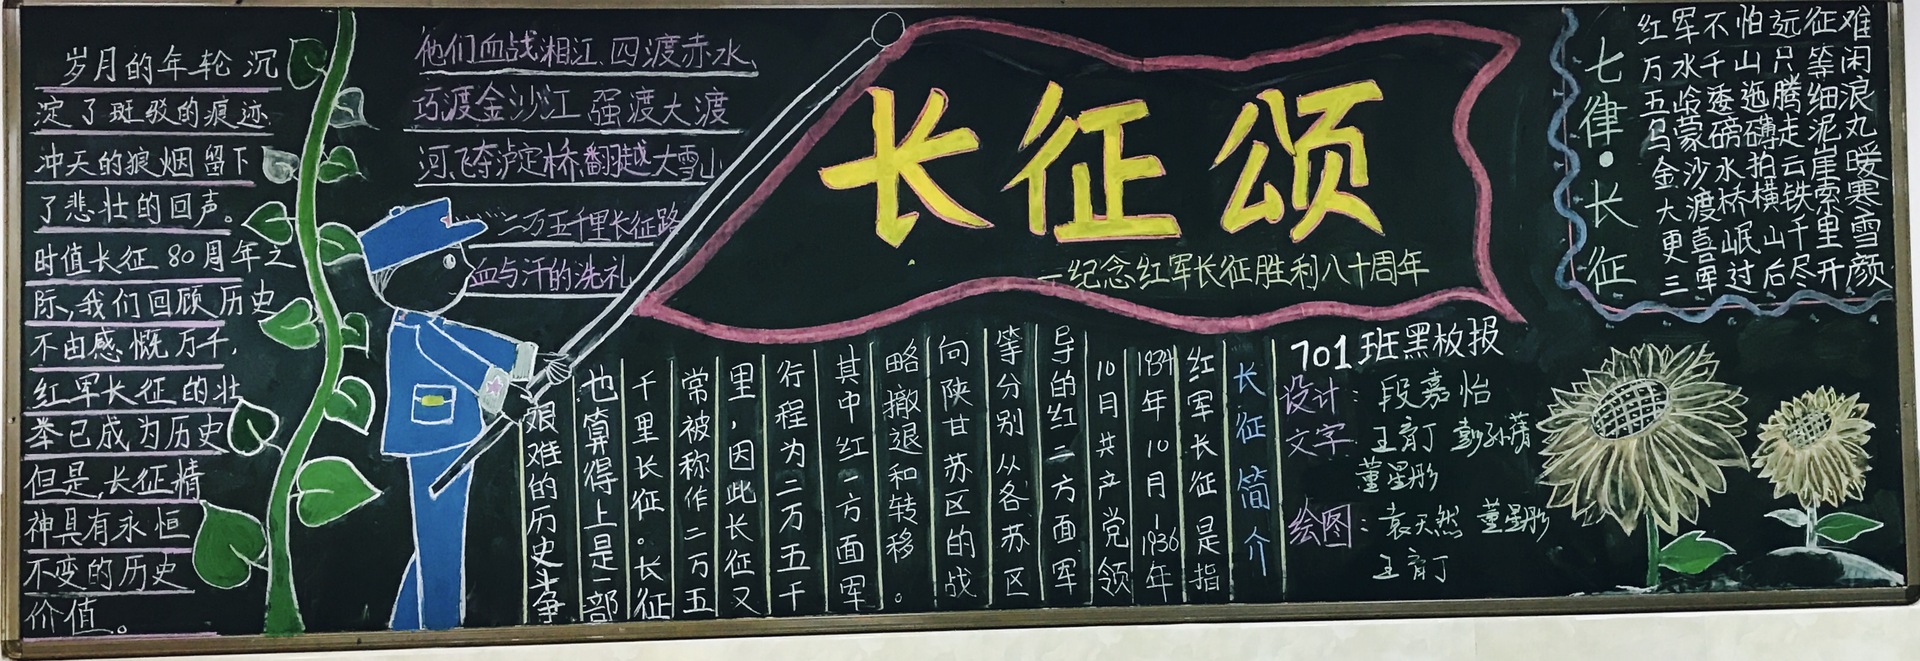 岁月的年轮沉
淀了斑驳的痕迹,
冲天的狼烟留下
了悲壮的回声。
时值长征80周年之
际,我们回顾历史
不由感慨万千,
红军长征的壮
举已成为历史
但是,长征精
神具有永恒
不变的历史
价值。
他们血战湘江、四渡赤水、
巧渡金沙江、强渡大渡
河、飞夺泸定桥、翻越大雪山
二万五千里长征路
血与汗的洗礼
长征颂
—纪念红军长征胜利八十周年
七律·长征
红军不怕远征难
万水千山只等闲
五岭逶迤腾细浪
乌蒙磅礴走泥丸
金沙水拍云崖暖
大渡桥横铁索寒
更喜岷山千里雪
三军过后尽开颜
长征简介
红军长征是指
1934年10月-1936年
10月共产党领
导的红二方面军
等分别从各苏区
向陕甘苏区的战
略撤退和转移。
其中红一方面军
行程为二万五千
里,因此长征又
常被称作二万五
千里长征。长征
也算得上是一部
艰难的历史斗争
701班黑板报
设计:段嘉怡
文字:王育丁
董星彤
绘图:袁天然 董星彤
王育丁